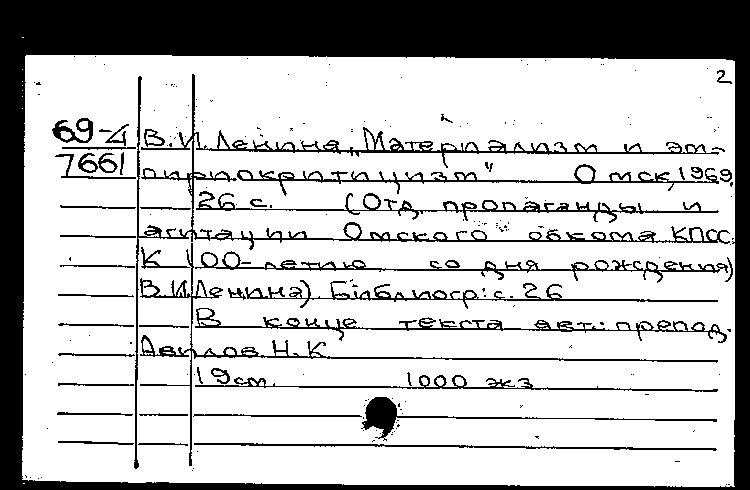 2
69-4 В.И.Ленина „Материализм и эм-
7661 пириокритицизм" Омск, 1969.
26 с. (Отд. пропаганды и
агитации Омского обкома КПСС.
К 100-летию со дня рождения
В.И.Ленина). Библиогр: с. 26
В конце текста авт.: препод.
Авилов Н.К
19 см. 1000 экз